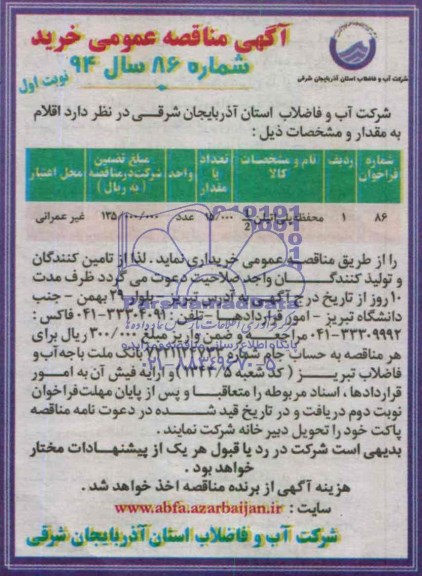 آگهی مناقصه عمومی خرید
شماره ۸۶ سال ۹۴
نوبت اول
شرکت آب و فاضلاب استان آذربایجان شرقی
شرکت آب و فاضلاب استان آذربایجان شرقی در نظر دارد اقلام
به مقدار و مشخصات ذیل :
شماره فراخوان ردیف نام و مشخصات کالا تعداد یا مقدار واحد مبلغ تضمین شرکت در مناقصه (به ریال) محل اعتبار
۸۶ ۱ محفظه پلی اتیلن 1/2 ۱۵/۰۰۰ عدد ۱۳۵/۰۰۰/۰۰۰ غیر عمرانی
را از طریق مناقصه عمومی خریداری نماید . لذا از تامین کنندگان
و تولید کنندگان واجد صلاحیت دعوت می گردد ظرف مدت
۱۰ روز از تاریخ درج آگهی به آدرس تبریز - بلوار ۲۹ بهمن - جنب
دانشگاه تبریز - امور قراردادها - تلفن : ۳۳۳۰۴۰۹۱-۰۴۱ فاکس :
۳۳۳۰۹۹۹۲-۰۴۱ ضمن واریز مبلغ ۳۰۰/۰۰۰ ریال برای
هر مناقصه به حساب جام شماره بانک ملت باجه آب و
فاضلاب تبریز ( کد شعبه و ارایه فیش آن به امور
قراردادها ، اسناد مربوطه را متعاقبا و پس از پایان مهلت فراخوان
نوبت دوم دریافت و در تاریخ قید شده در دعوت نامه مناقصه
پاکت خود را تحویل دبیر خانه شرکت نمایند .
بدیهی است شرکت در رد یا قبول هر یک از پیشنهادات مختار
خواهد بود .
هزینه آگهی از برنده مناقصه اخذ خواهد شد .
سایت : www.abfa.azarbaijan.ir
شرکت آب و فاضلاب استان آذربایجان شرقی